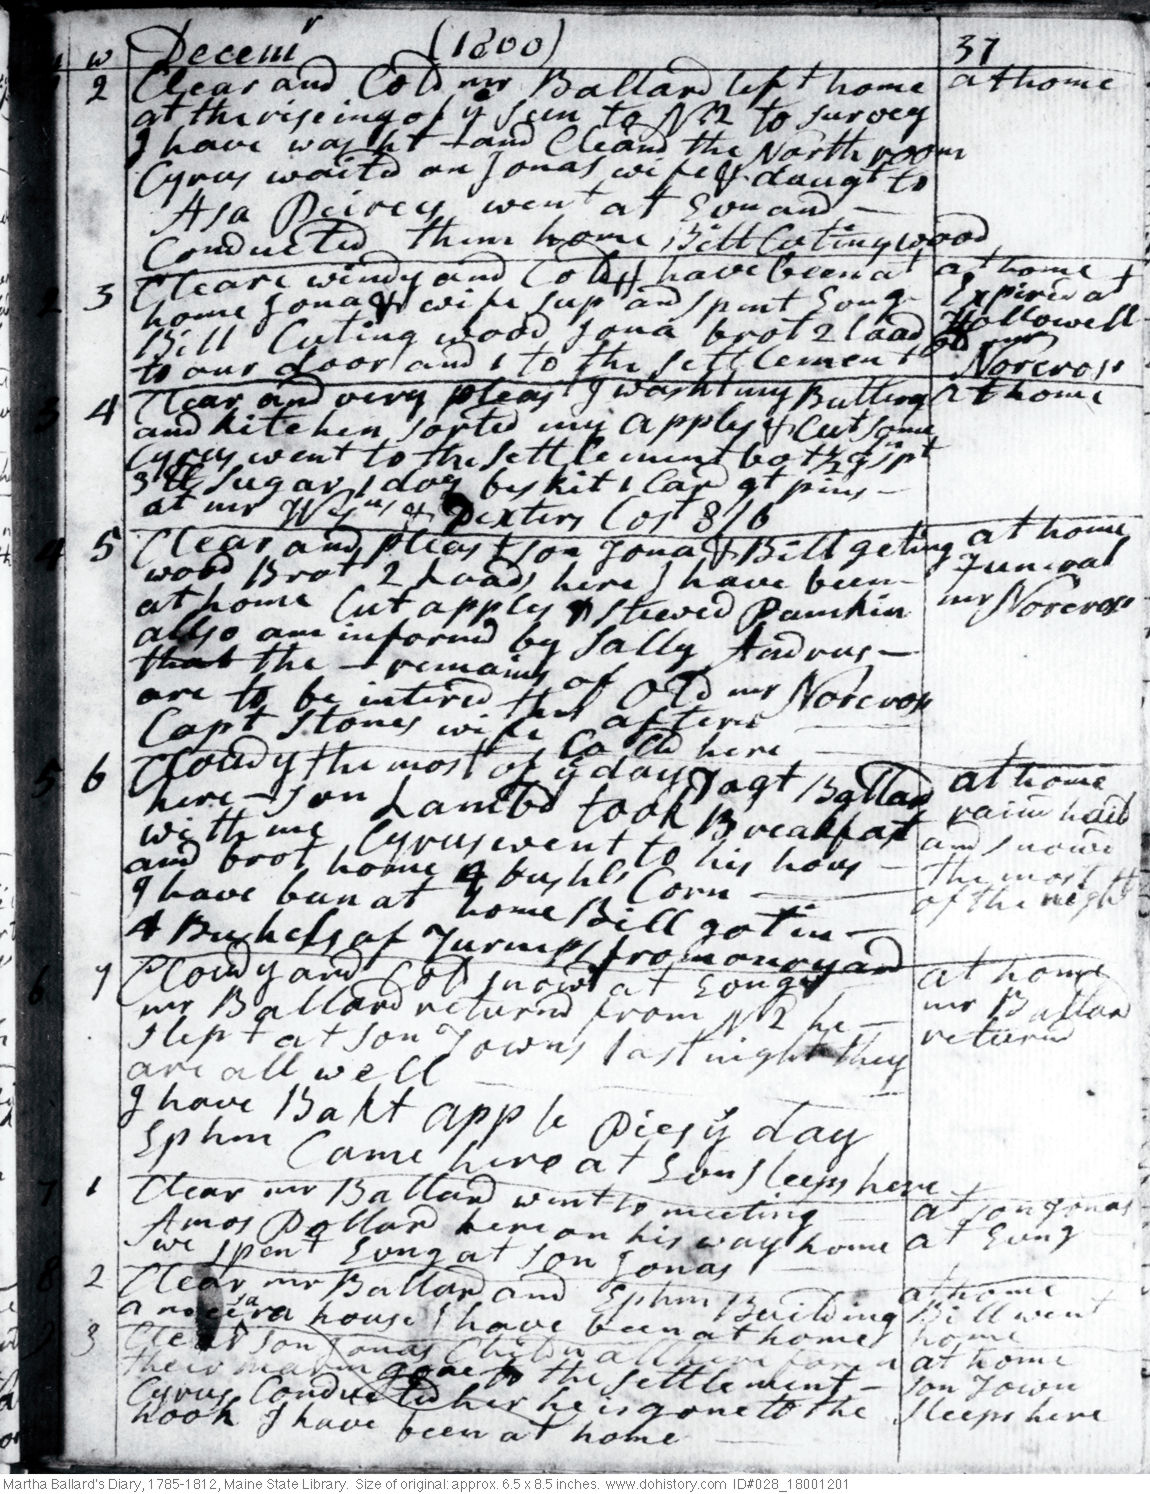 m w Decemr (1800) 37
1 2 Clear and Cold mr Ballard left home at home
at the riseing of ye Sun to No 2 to survey
I have washt and Cleand the North room
Cyrus waitd on Jonas wife & daugt to
Asa Peircey went at Evn and
Conducted them home Bill Cuting wood
2 3 Cleare windy and Cold I have been at at home
home Jona & wife sup and spent Evng Expired at
Bill Cuting wood Jona brot 2 load Hallowell
to our door and 1 to the settlement old mr Norcross
3 4 Clear and very pleast I washt my Buttery at home
and kitchen sorted my apples & Cut some
Cyrus went to the settlement bot
3 lb sugar 1 doz beskit 1 Card qt pins
at mr & Dexters Cost 8/6
4 5 Clear and pleast son Jona & Bill geting at home
wood Brot 2 Loads here I have been Funeral
at home Cut apples & stewed Pumkin mr Norcross
allso am informd by Sally Andrus
that the remains of Old mr Norcross
are to be intered this aftern
Capt Stones wife Calld here
5 6 Cloudy the most of ye day Dagt Ballad at home
here son Lambd took Breakfast rain haild
with me Cyrus went to his hous and snowd
and brot home 4 bushls Corn the most
I have been at home Bill got in of the night
4 Bushels of Turnips from our yard
6 7 Cloudy and Cold snowd at Evng at home
mr Ballard returnd from No 2 he mr Ballard
slept at son Towns last night they returnd
are all well
I have Bakt apple Pies ye day
Ephm Came here at Evn sleeps here
7 1 Clear mr Ballard went to meeting at son Jonas
Amos Pollard here on his way home at Evng
we spent Evng at son Jonas
8 2 Clear mr Ballard and Ephm Building at home
a house I have been at home Bill went home
9 3 Clear son Jonas Childn all here at home
their marm gone to the settlement son Town
Cyrus Conducted her he is gone to the sleeps here
hook I have been at home
Martha Ballard's Diary, 1785-1812, Maine State Library. Size of original: approx. 6.5 x 8.5 inches. www.dohistory.com ID#028_18001201